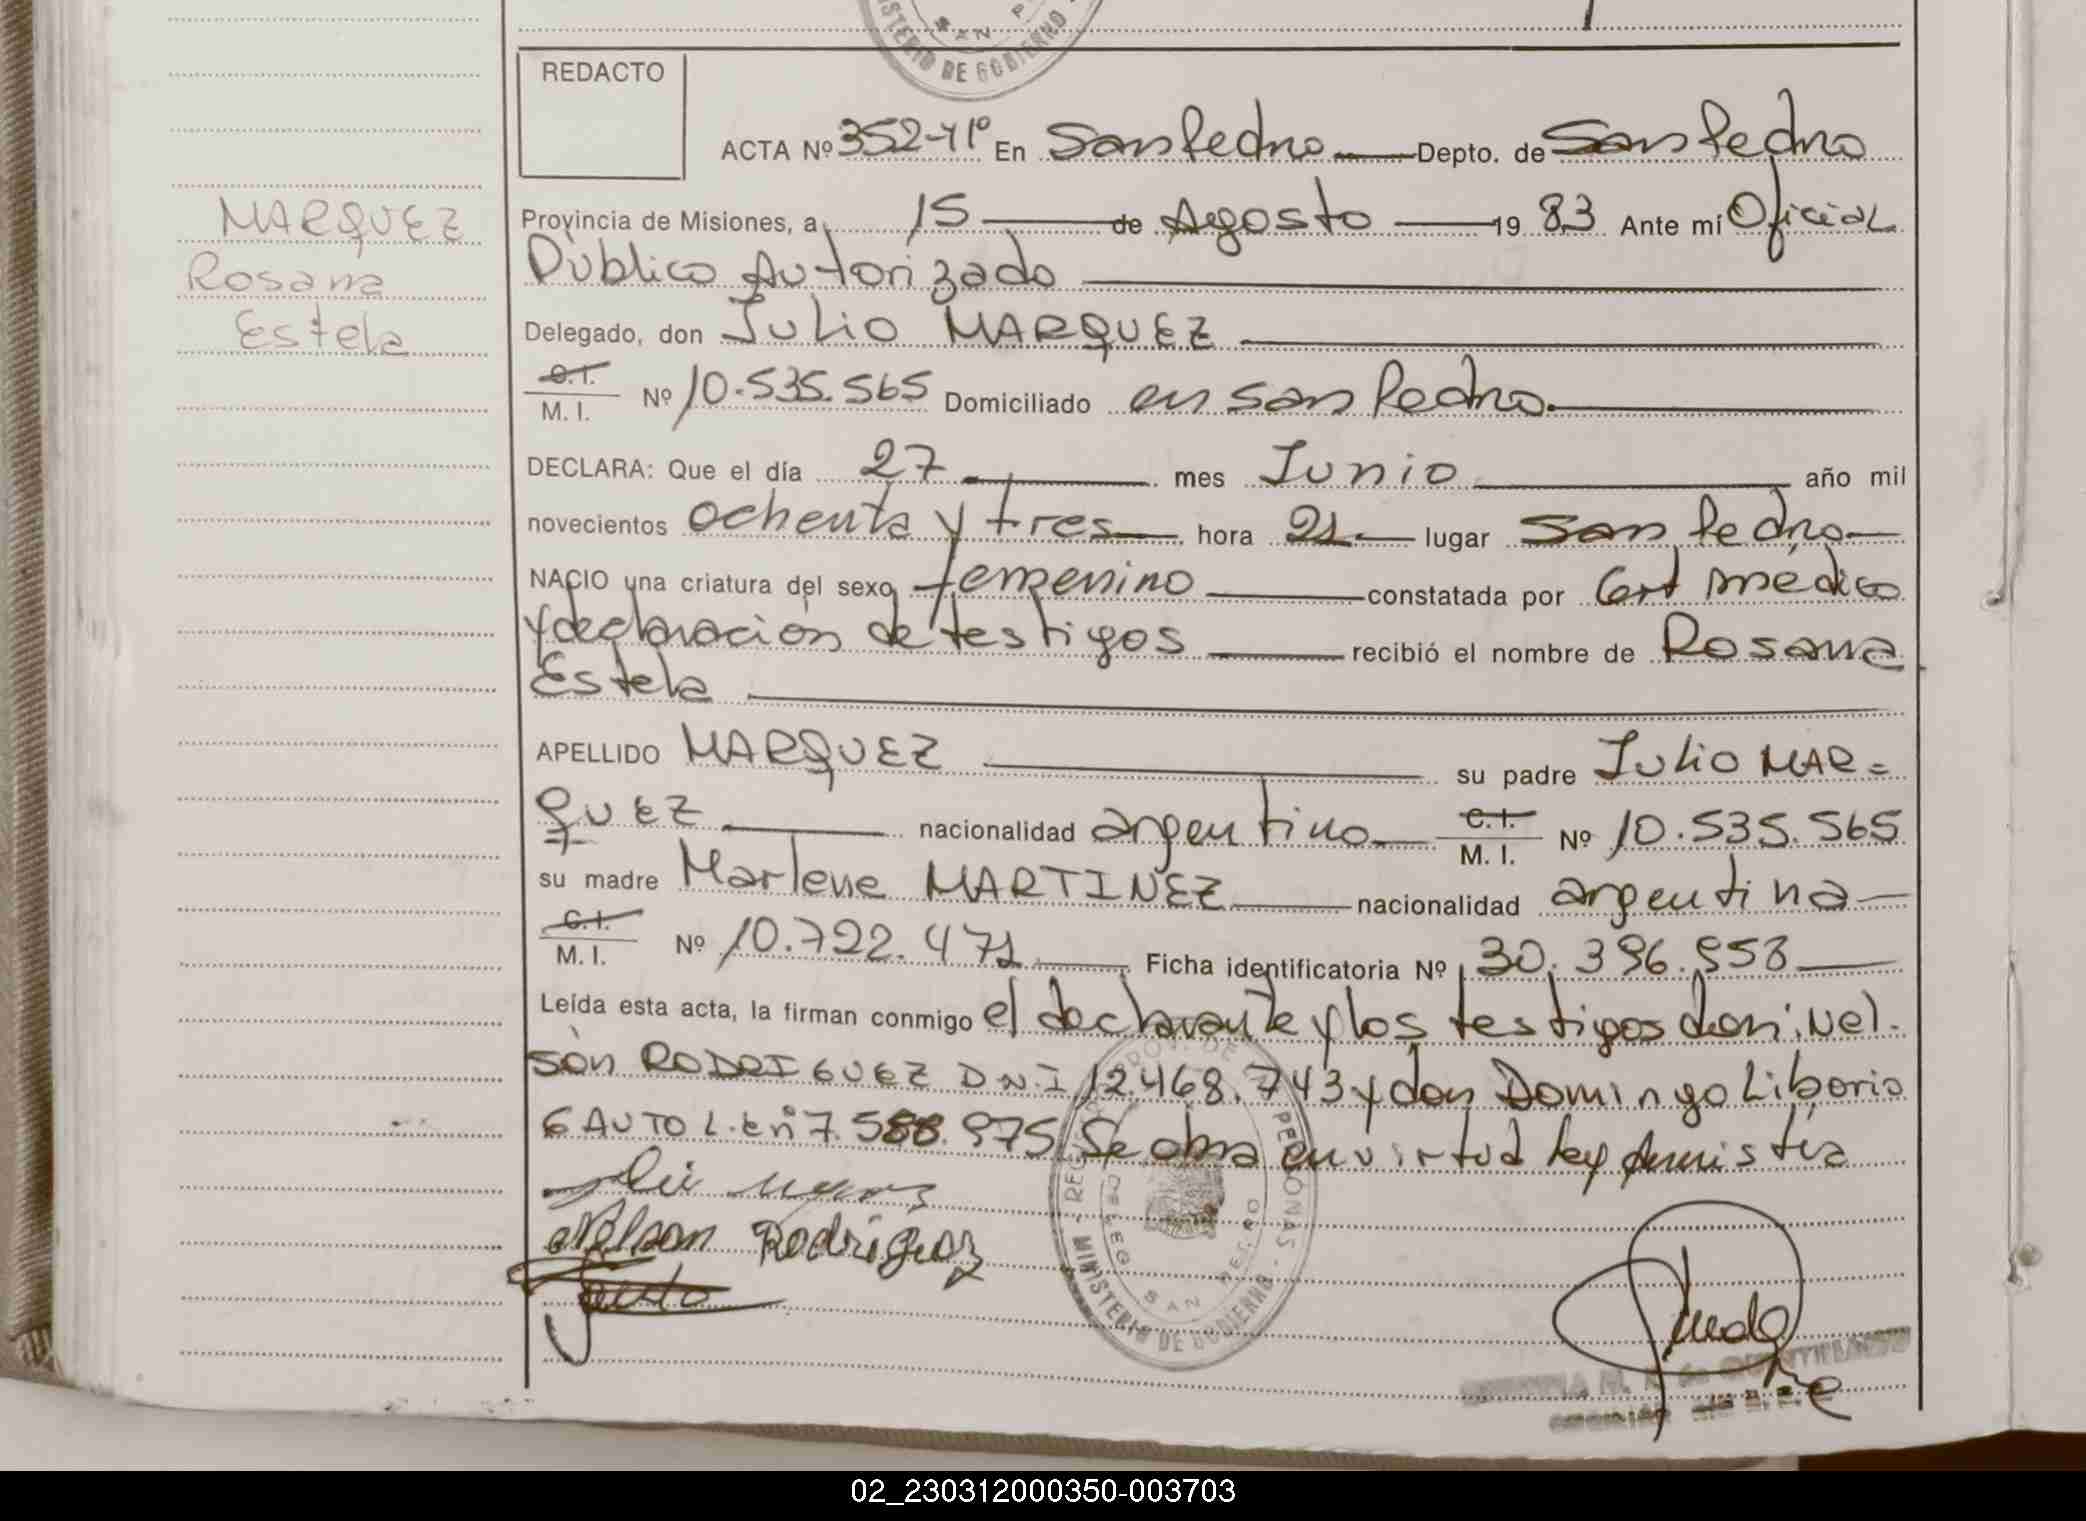 SAN P
MINISTERIO DE GOBIERNO
REDACTO
ACTA Nº 352-41º En San Pedro Depto. de San Pedro
MARQUEZ
Rosana
Estela
Provincia de Misiones, a 15 de Agosto 19 83 Ante mí Oficial
Público Autorizado
Delegado, don Julio MARQUEZ
C.I.
M. I. Nº 10.535.565 Domiciliado en San Pedro.
DECLARA: Que el día 27 mes Junio año mil
novecientos ochenta y tres hora 21 lugar San Pedro
NACIO una criatura del sexo femenino constatada por Cert médico
y declaración de testigos recibió el nombre de Rosana
Estela
APELLIDO MARQUEZ su padre Julio MAR=
QUEZ nacionalidad argentino C.I. M. I. Nº 10.535.565
su madre Marlene MARTINEZ nacionalidad argentina
C.I.
M. I. Nº 10.722.471 Ficha identificatoria Nº 30.396.958
Leída esta acta, la firman conmigo el declarante y los testigos don: Nel-
són RODRIGUEZ D.N.I 12.468.743 y don Domingo Liborio
GAUTO L.E nº 7.588.975 Se obra en virtud ley Amnistía
Nelson Rodriguez
REG PROV. DE PERSONAS
DELEG SAN PEDRO
MINISTERIO DE GOBIERNO
02_230312000350-003703